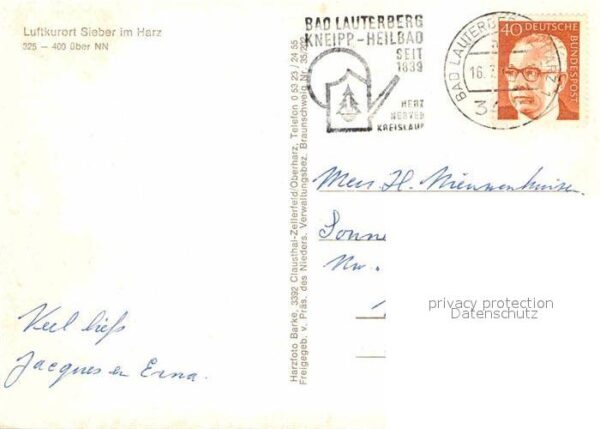 Luftkurort Sieber im Harz
325 — 400 über NN
BAD LAUTERBERG
KNEIPP-HEILBAD
SEIT
1839
HERZ
NERVEN
KREISLAUF
BAD LAUTERBERG HARZ
16.7.
34
40
DEUTSCHE BUNDESPOST
Harzfoto Barke, 3392 Clausthal-Zellerfeld/Oberharz, Telefon 0 53 23 / 24 55
Freigegeb. v. Präs. des Nieders. Verwaltungsbez. Braunschweig Nr.
Mevr. H. Nieuwenhuise.
Sonne
Nw.
privacy protection
Datenschutz
Veel liefs
Jacques en Erna.